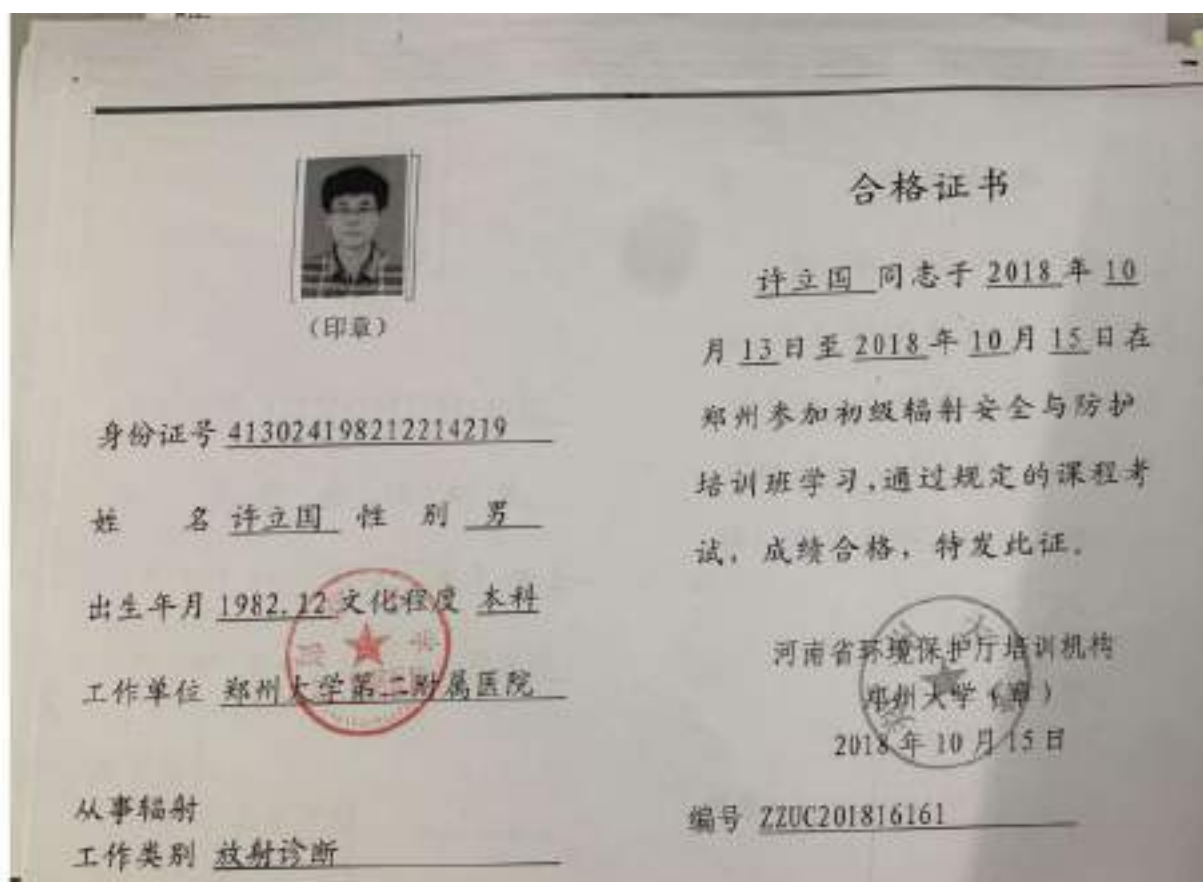 (印章)
身份证号 413024198212214219
姓 名 许立国 性 别 男
出生年月 1982.12 文化程度 本科
工作单位 郑州大学第二附属医院
从事辐射
工作类别 放射诊断
合格证书
许立国 同志于 2018 年 10
月 13 日至 2018 年 10 月 15 日在
郑州参加初级辐射安全与防护
培训班学习,通过规定的课程考
试,成绩合格,特发此证。
河南省环境保护厅培训机构
郑州大学(章)
2018 年 10 月 15 日
编号 ZZUC201816161